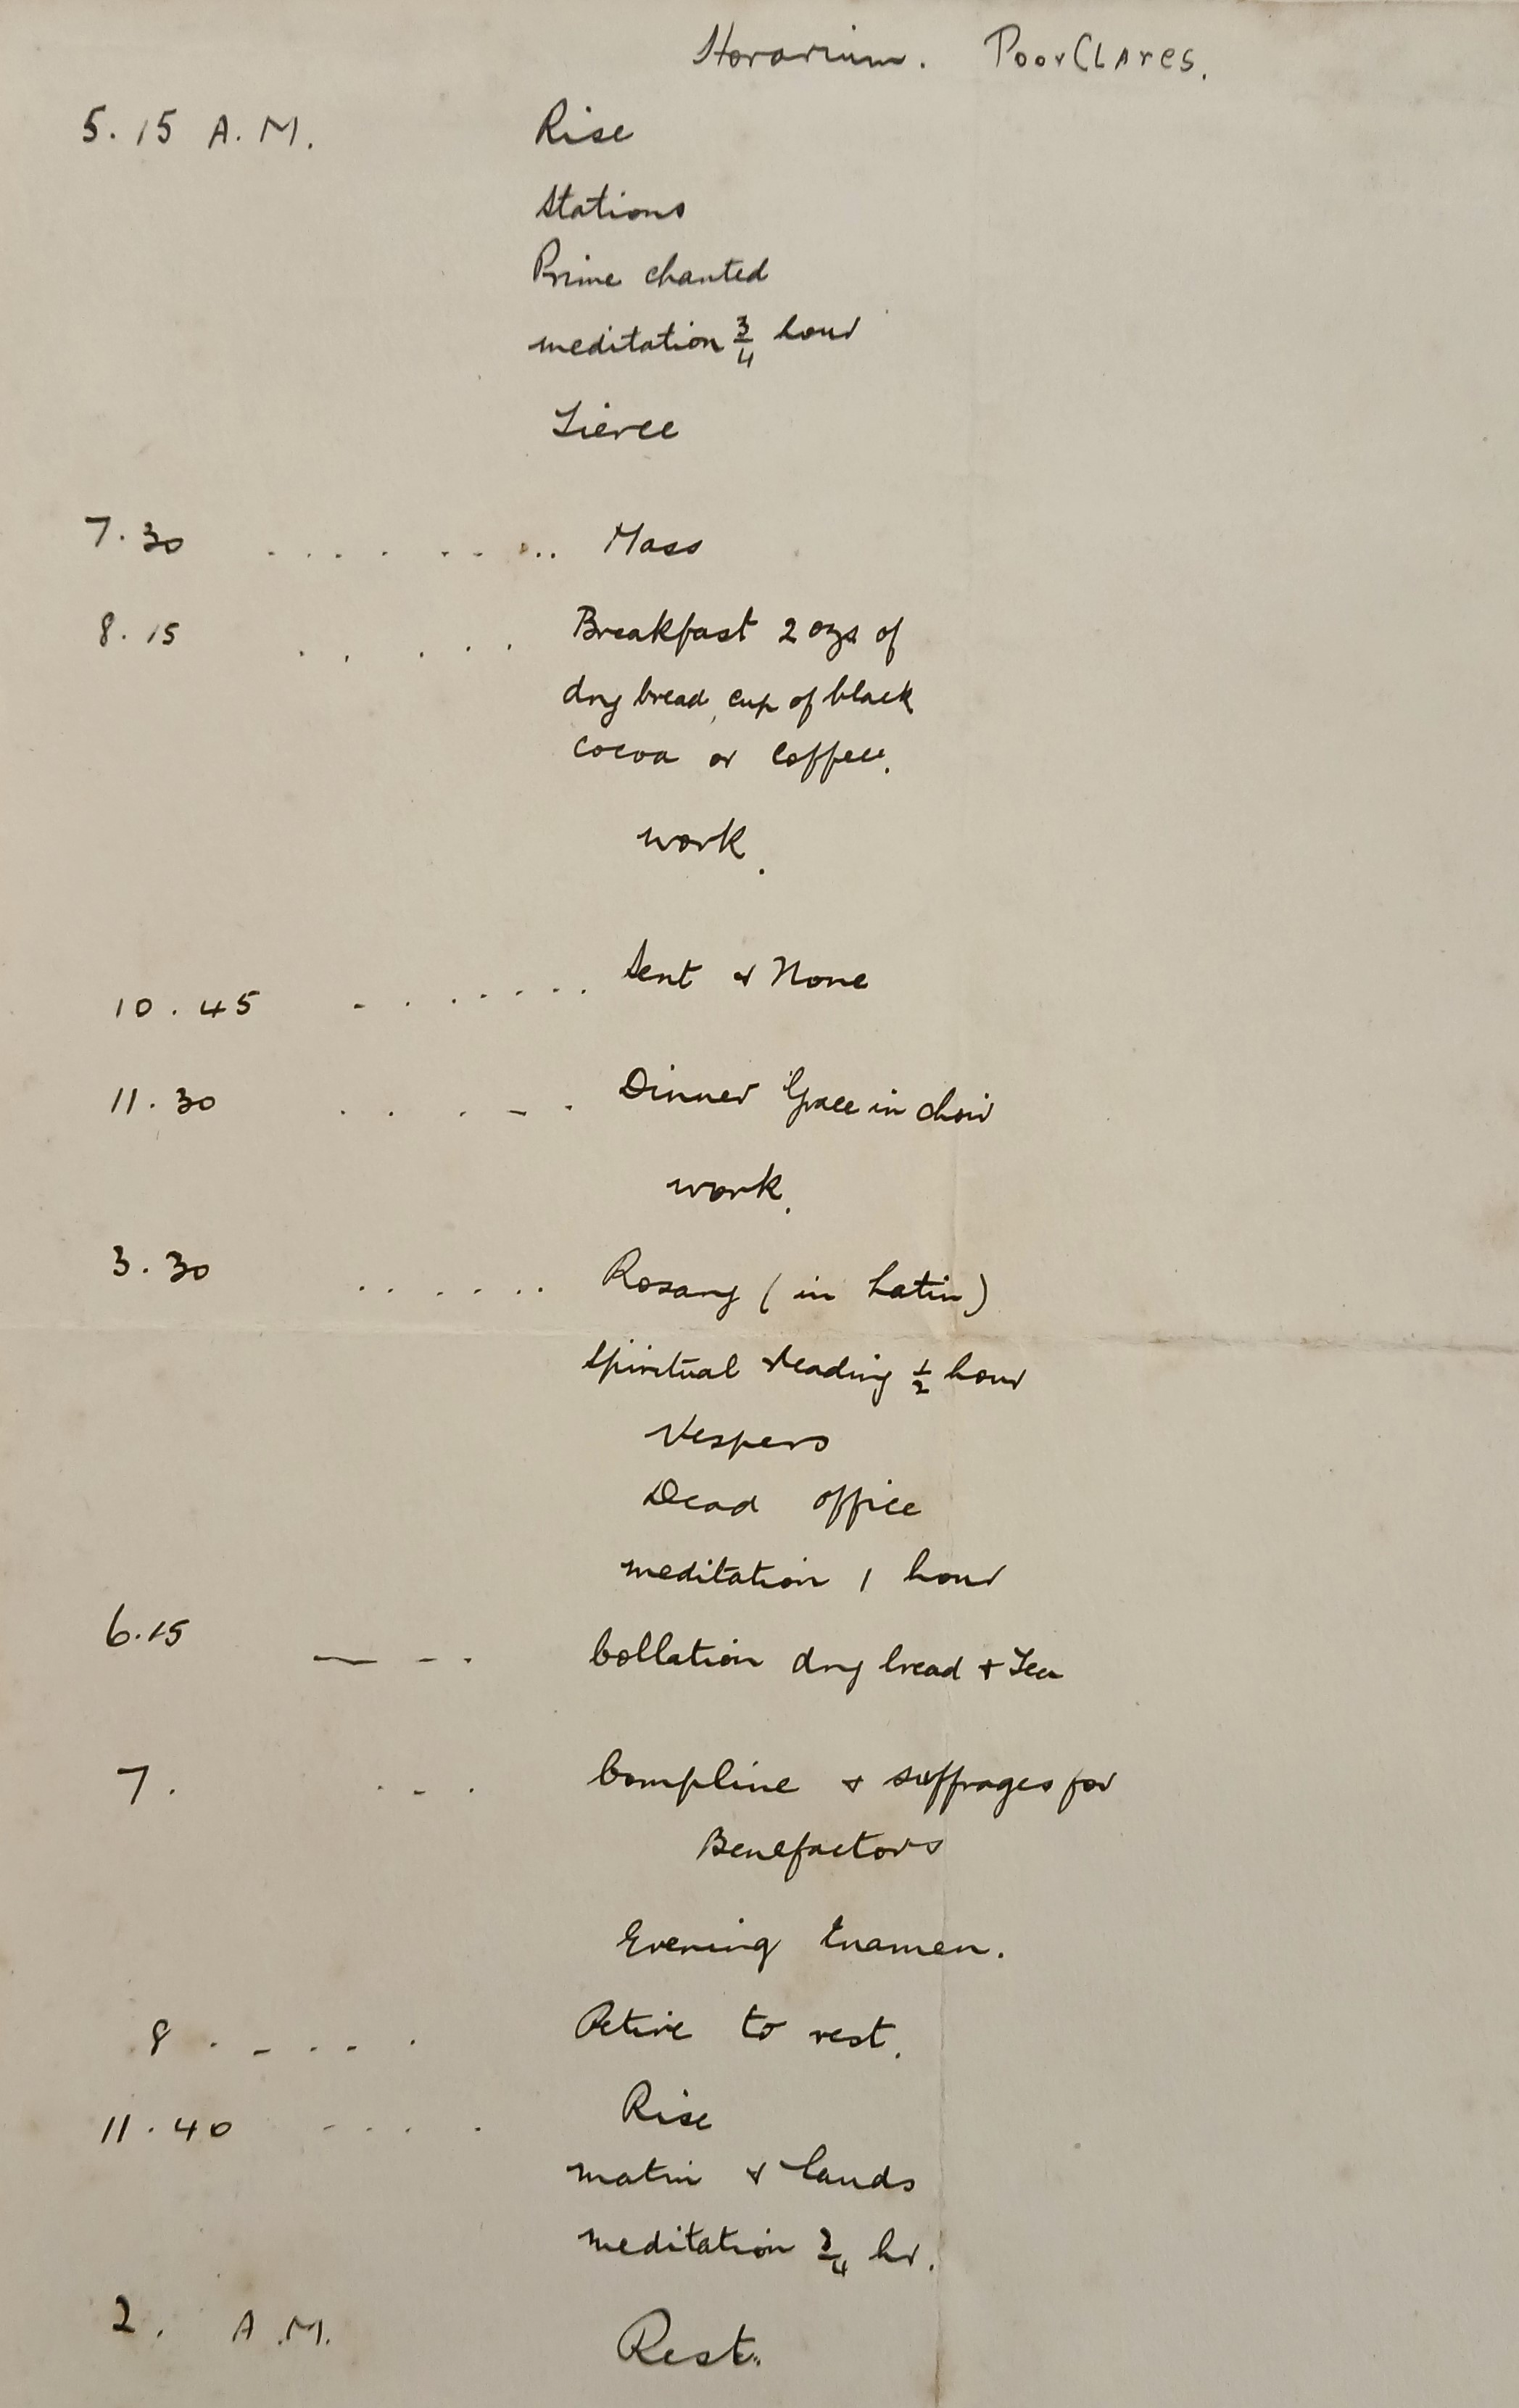 Horarium. Poor Clares.
5.15 A.M. Rise
Stations
Prime chanted
meditation 3/4 hour
Tierce
7.30 . . . . . . . . . Mass
8.15 . . . . . . Breakfast 2 ozs of
dry bread, cup of black
cocoa or Coffee.
work.
10.45 . . . . . . . Sext & None
11.30 . . . - . Dinner Grace in choir
work.
3.30 . . . . . . Rosary (in Latin)
Spiritual reading 1/2 hour
Vespers
Dead office
meditation 1 hour
6.15 — - . Collation dry bread & Tea
7. . - . Compline & suffrages for
Benefactors
Evening Examen.
8 . - . . . Retire to rest.
11.40 - . . . Rise
matin & Lauds
meditation 3/4 hr.
2. A.M. Rest.